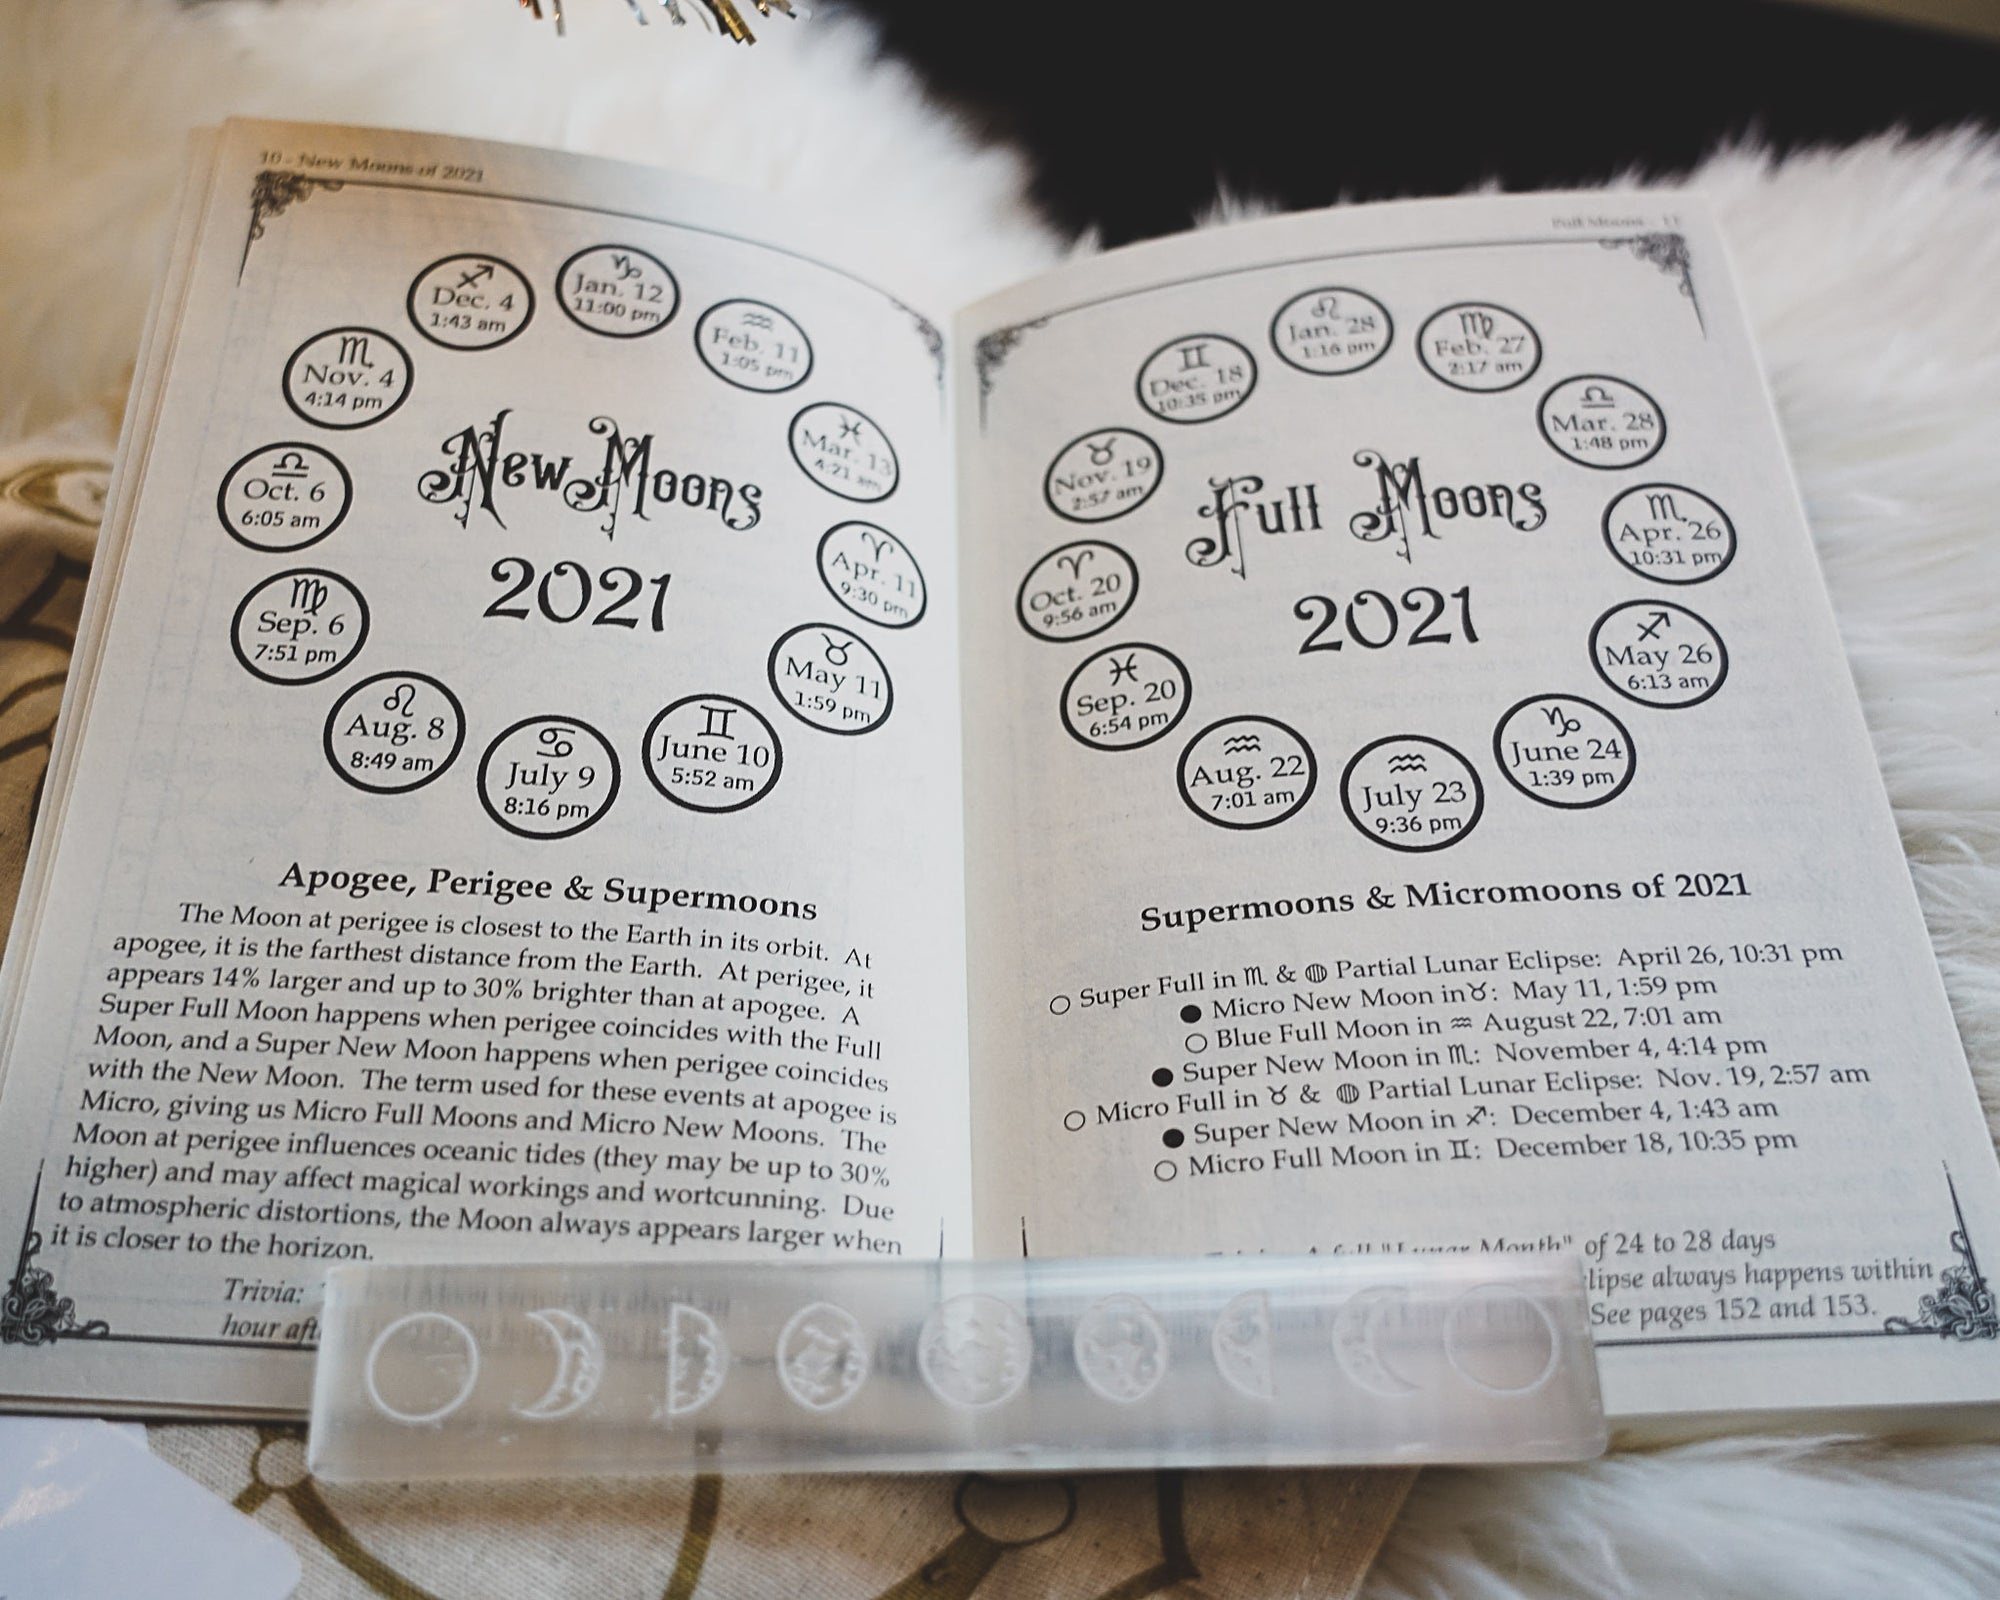 10 - New Moons of 2021
♑
Jan. 12
11:00 pm
♒
Feb. 11
1:05 pm
♓
Mar. 13
4:21 am
♈
Apr. 11
9:30 pm
♉
May 11
1:59 pm
♊
June 10
5:52 am
♋
July 9
8:16 pm
♌
Aug. 8
8:49 am
♍
Sep. 6
7:51 pm
♎
Oct. 6
6:05 am
♏
Nov. 4
4:14 pm
♐
Dec. 4
1:43 am
New Moons
2021
Apogee, Perigee & Supermoons
The Moon at perigee is closest to the Earth in its orbit. At
apogee, it is the farthest distance from the Earth. At perigee, it
appears 14% larger and up to 30% brighter than at apogee. A
Super Full Moon happens when perigee coincides with the Full
Moon, and a Super New Moon happens when perigee coincides
with the New Moon. The term used for these events at apogee is
Micro, giving us Micro Full Moons and Micro New Moons. The
Moon at perigee influences oceanic tides (they may be up to 30%
higher) and may affect magical workings and wortcunning. Due
to atmospheric distortions, the Moon always appears larger when
it is closer to the horizon.
Trivia:
hour
Full Moons - 11
♌
Jan. 28
1:16 pm
♍
Feb. 27
2:17 am
♎
Mar. 28
1:48 pm
♏
Apr. 26
10:31 pm
♐
May 26
6:13 am
♑
June 24
1:39 pm
♒
July 23
9:36 pm
♒
Aug. 22
7:01 am
♓
Sep. 20
6:54 pm
♈
Oct. 20
9:56 am
♉
Nov. 19
2:57 am
♊
Dec. 18
10:35 pm
Full Moons
2021
Supermoons & Micromoons of 2021
○ Super Full in ♏ & ◍ Partial Lunar Eclipse: April 26, 10:31 pm
● Micro New Moon in ♉: May 11, 1:59 pm
○ Blue Full Moon in ♒ August 22, 7:01 am
● Super New Moon in ♏: November 4, 4:14 pm
○ Micro Full in ♉ & ◍ Partial Lunar Eclipse: Nov. 19, 2:57 am
● Super New Moon in ♐: December 4, 1:43 am
○ Micro Full Moon in ♊: December 18, 10:35 pm
Month" of 24 to 28 days
always happens within
See pages 152 and 153.